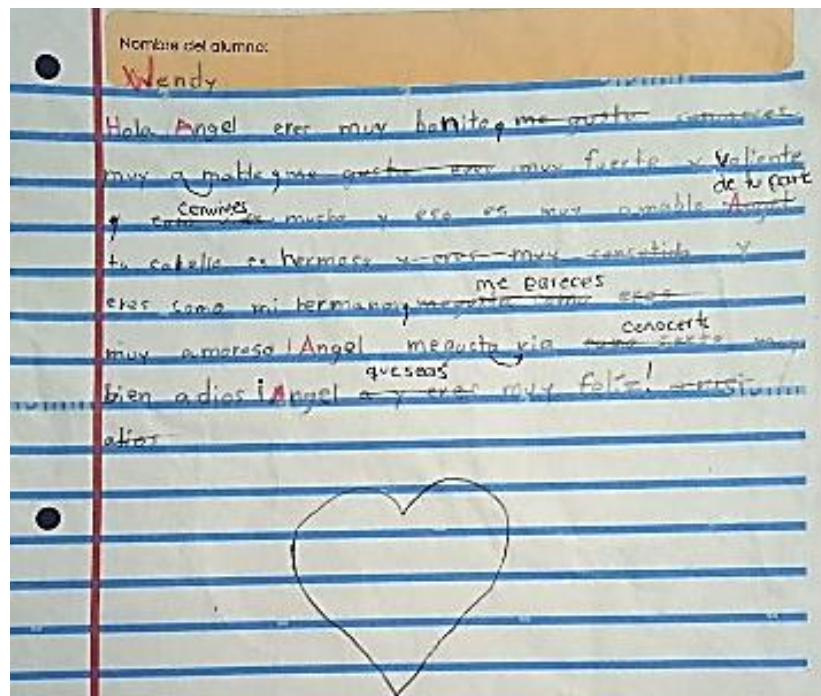 Nombre del alumno:
Wendy
Hola Angel eres muy bonito, me gusta conoceres
muy amable, me gusta eres muy fuerte y valiente
de tu parte
convives
, mucho y eso es muy amable Angel
tu cabello es hermoso y eres muy consetido y
me pareces
eres como mi hermano, me gusta como eres
conocerte
muy amoroso ¡Angel megusta ria muy
que seas
bien adios ¡Angel a y eres muy feliz!
adios